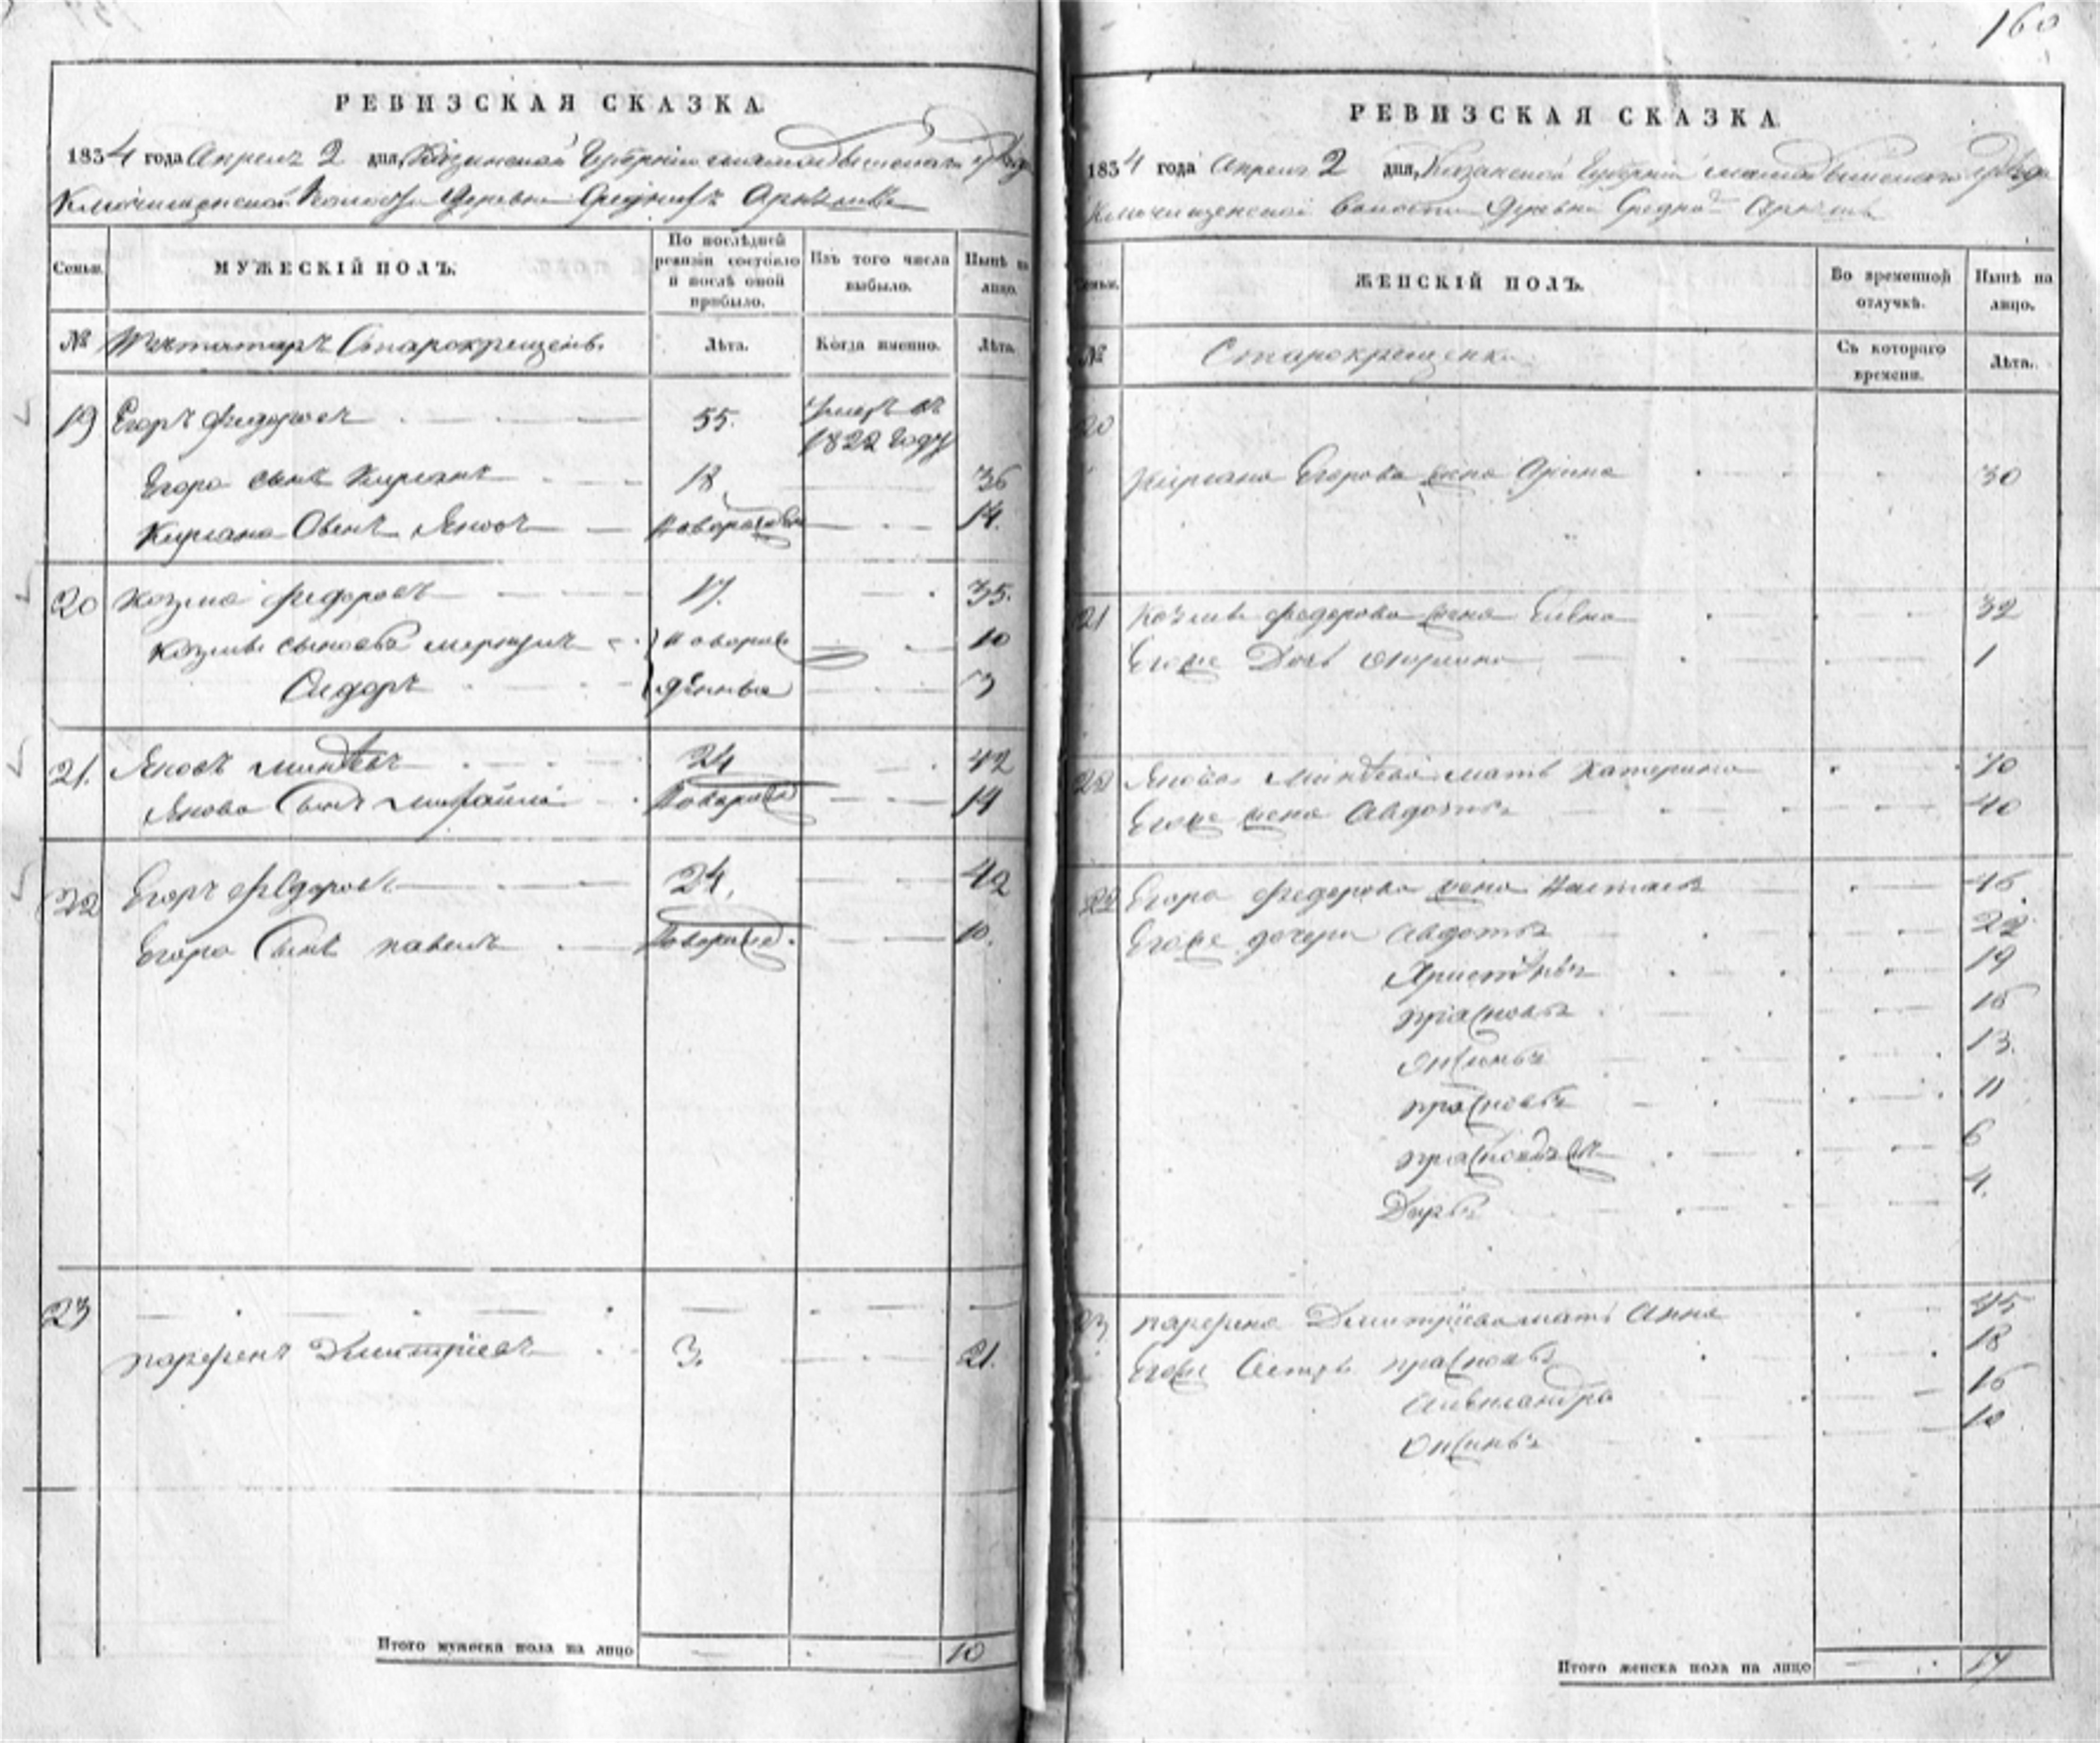 160
РЕВИЗСКАЯ СКАЗКА
1834 года Апреля 2 дня, Казанской Губернии мамадышскаго уѣзда
Ключищенской Волости Деревни
Семьи. МУЖЕСКІЙ ПОЛЪ. По послѣдней ревизіи состояло и послѣ оной прибыло. Изъ того числа выбыло. Нынѣ на лицо.
№ Старокрещенъ. Лѣта. Когда именно. Лѣта.
19 Егоръ Федоровъ 55. умеръ въ 1822 году
Егора сынъ 18 36
Сынъ Яковъ новорожден 14.
20 Козма Федоровъ 17. 35.
Козмы сыновья новорож 10
Сидоръ денныя 3
21. Яковъ 24 42
Якова Сынъ Михайла Новорож 14
22 Егоръ Федоровъ 24. 42
Егора Сынъ павелъ Новорожд. 10.
23
парфенъ Дмитріевъ 3. 21.
Итого мужеска пола на лицо 10
РЕВИЗСКАЯ СКАЗКА
1834 года Апреля 2 дня, Казанской Губерніи мамадышскаго уѣзда
Ключищенской Волости Деревни
Семьи. ЖЕНСКІЙ ПОЛЪ. Во временной отлучкѣ. Нынѣ на лицо.
№ Старокрещенки Съ котораго времени. Лѣта.
20
Егорова жена Арина 30
21 Козмы Федорова жена 32
Егоже Дочь 1
Якова мать Катерина 70
Егоже жена Авдотья 40
22 Егора Федорова жена Настасья 45
Егоже дочери Авдотья 22
19
прасковья 16
Оксинья 13.
прасковья 11
6
Дарья 4.
23 парфена Дмитріева мать Анна 45
Егоже Сестры прасковья 18
Александра 16
Оксинья 10
Итого женска пола на лицо 17